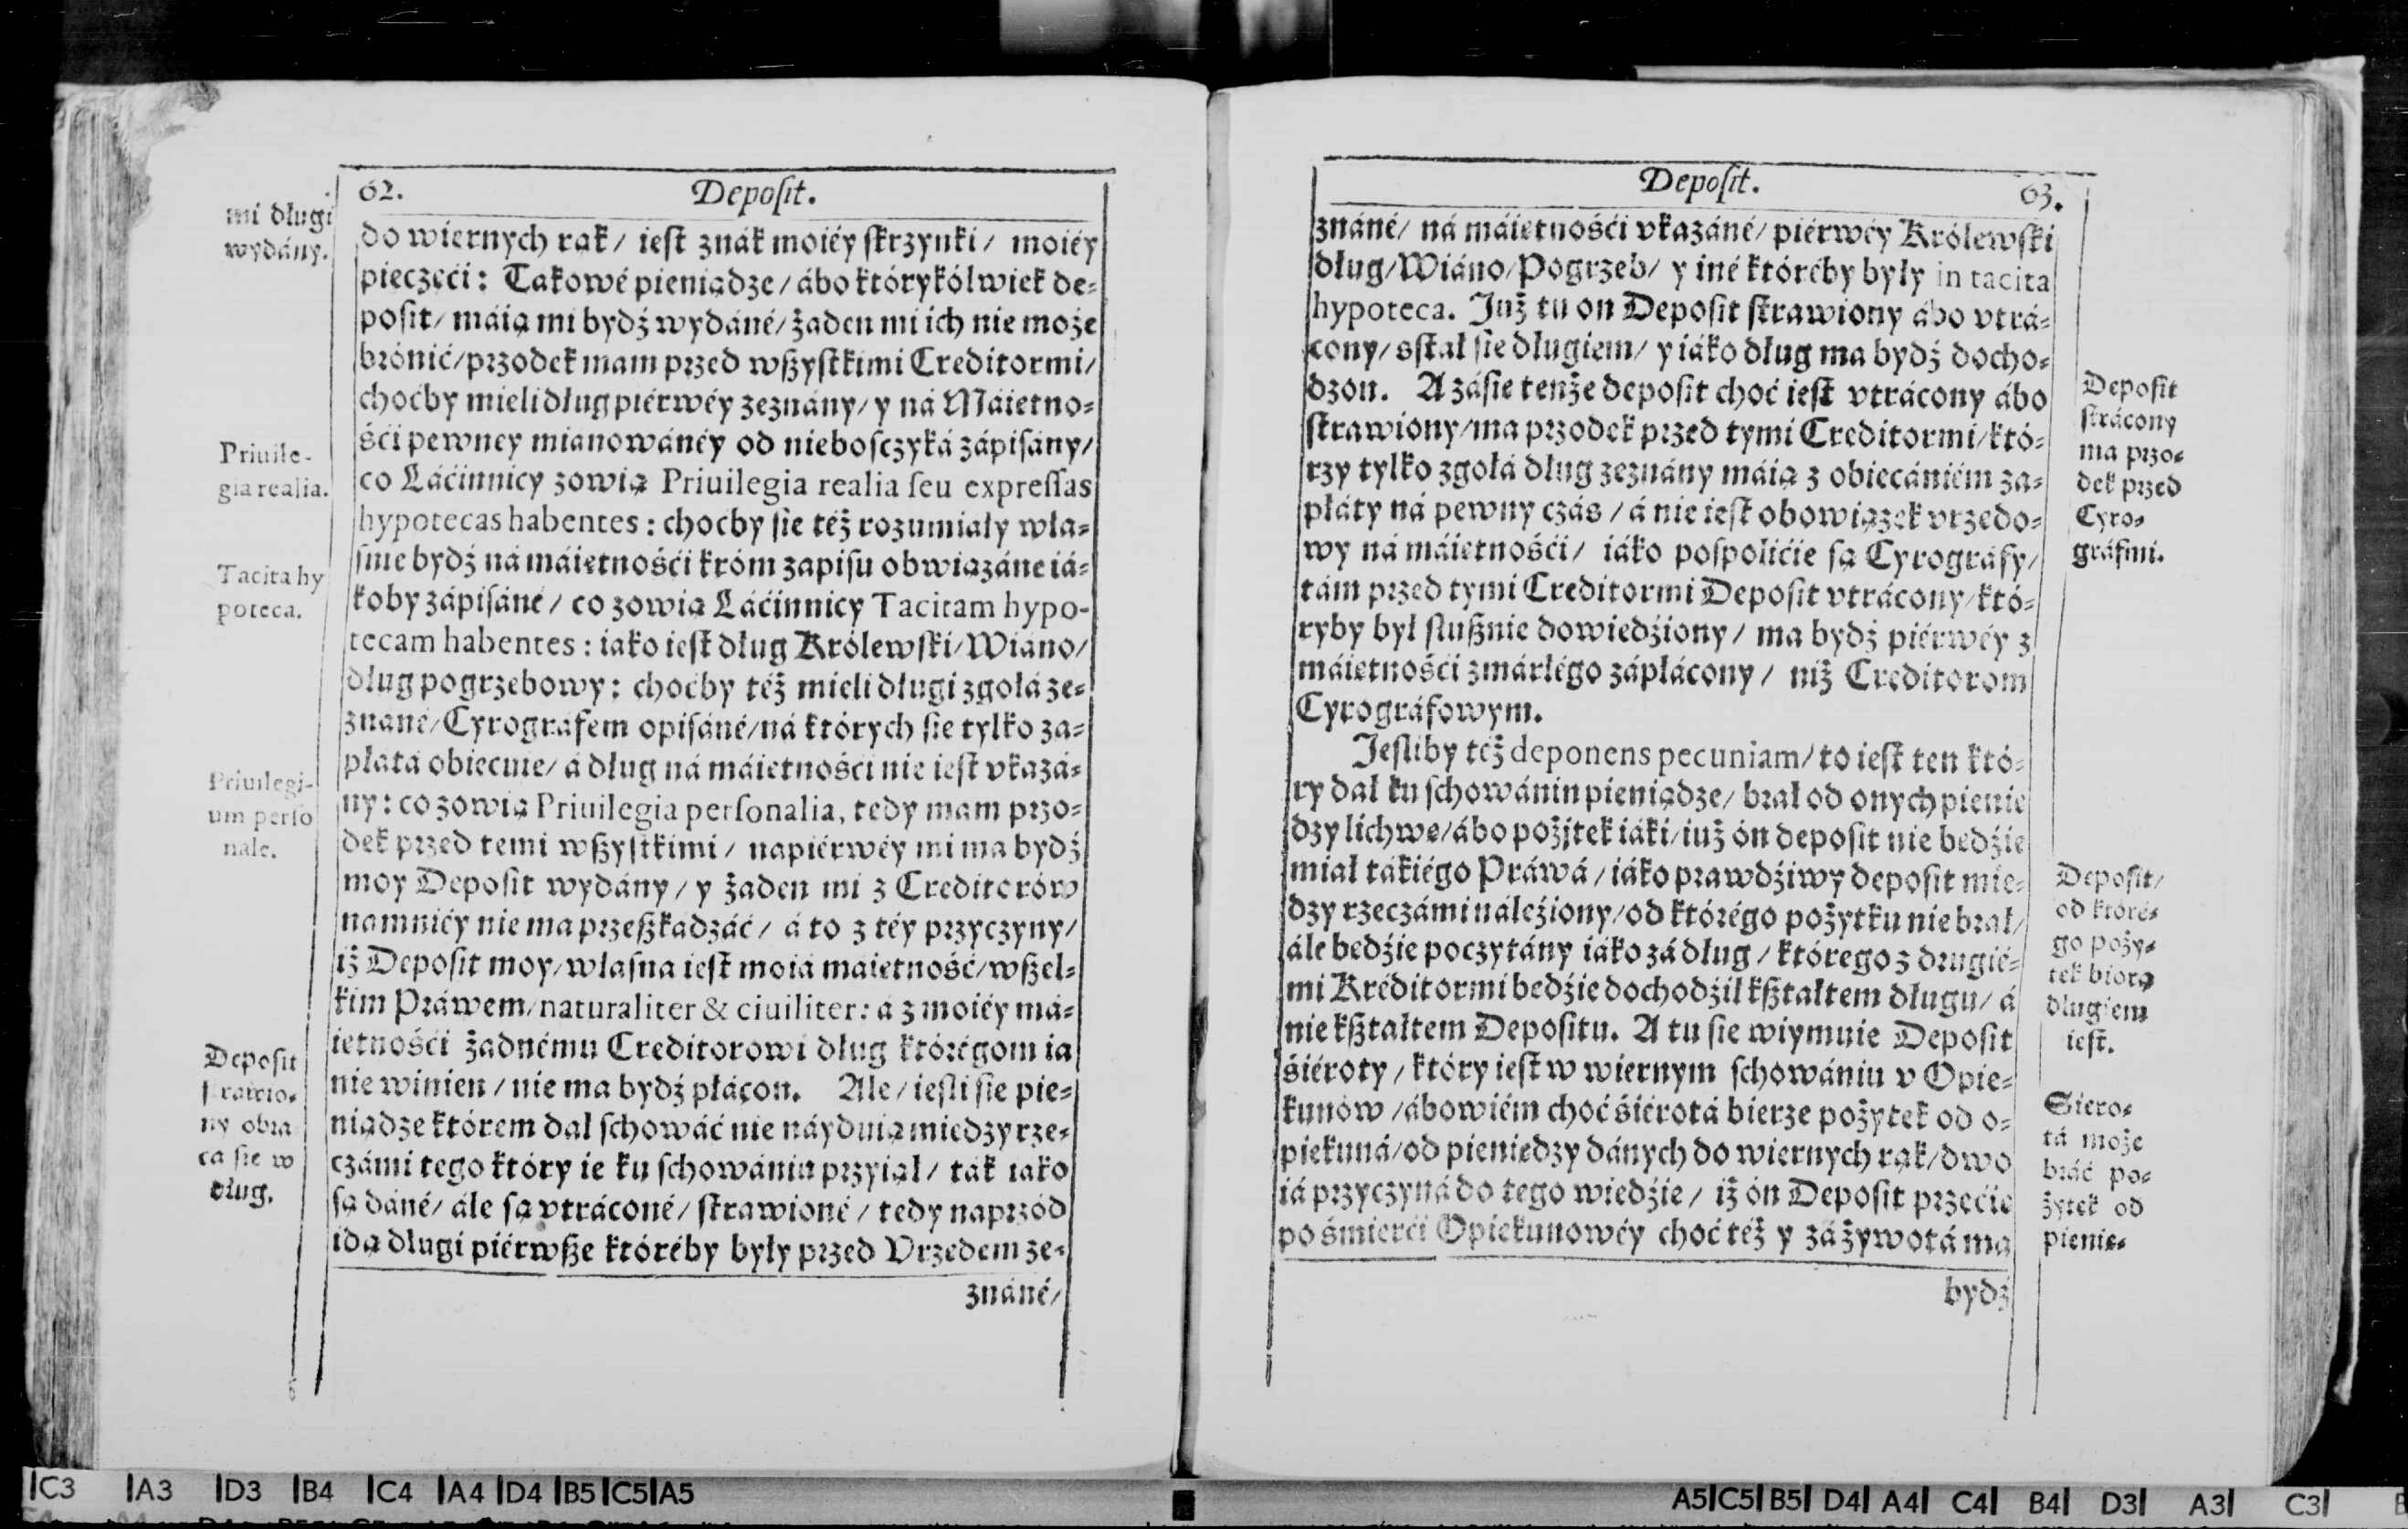 62. Deposit.
mi długi
wydány.
do wiernych rąk/ iest znák moiéy skrzynki/ moiéy
pieczęći: Takowé pieniądze/ ábo którykólwiek de-
posit/ máią mi bydź wydáné/ żaden mi ich nie może
brónić/ przodek mam przed wßystkimi Creditormi/
choćby mieli dług piérwéy zeznány/ y ná Máietno-
śći pewney mianowánéy od nieboſczyká zápiſány/
Priuile-
gia realia.
co Láćinnicy zowią Priuilegia realia ſeu expreſſas
hypotecas habentes: choćby ſie téż rozumiáły wła-
ſnie bydź ná máietnośći króm zapiſu obwiązáne iá-
Tacita hy
poteca.
koby zápiſáné/ co zowią Láćinnicy Tacitam hypo-
tecam habentes: iako iest dług Królewski/ Wiáno/
dług pogrzebowy: choćby téż mieli długi zgołá ze-
znané/ Cyrografem opiſáné/ ná których ſie tylko za-
płatá obiecuie/ á dług ná máietnośći nie iest vkazá-
Priuilegi-
um perſo
nale.
ny: co zowią Priuilegia perſonalia, tedy mam przo-
dek przed temi wßyſtkimi/ napiérwéy mi ma bydź
moy Deposit wydány/ y żaden mi z Creditorów
namniéy nie ma przeßkadzáć/ á to z téy przyczyny/
iż Deposit moy/ właſna iest moiá maietność/ wßel-
kim Práwem/ naturaliter & ciuiliter: á z moiéy má-
ietnośći żadnému Creditorowi dług którégom ia
Deposit
strawio-
ny obra
ca ſie w
dług.
nie winien/ nie ma bydź płácon. Ale/ ieſli ſie pie-
niądze którem dał ſchowáć nie náyduią miedzy rze-
czámi tego który ie ku ſchowániu przyiął/ ták iako
ſą dáné/ ále ſą vtráconé/ strawioné/ tedy naprzód
idą długi piérwße któréby były przed Vrzedem ze-
znáné/
Deposit. 63.
znáné/ ná máietnośći vkazáné/ piérwéy Królewski
dług/ Wiáno/ Pogrzeb/ y iné któréby były in tacita
hypoteca. Już tu on Deposit strawiony ábo vtrá-
cony/ sstał ſie długiem/ y iáko dług ma bydź docho-
dzón. A záſie tenże deposit choć iest vtrácony ábo
strawiony/ ma przodek przed tymi Creditormi/ któ-
rzy tylko zgołá dług zeznány máią z obiecániém za-
płáty ná pewny czás/ á nie iest obowiązek vrzedo-
wy ná máietnośći/ iáko poſpolićie ſą Cyrográfy/
tám przed tymi Creditormi Deposit vtrácony/ któ-
ryby był ſłußnie dowiedźiony/ ma bydź piérwéy z
máietnośći zmárłégo zápłácony/ niż Creditorom
Cyrográfowym.
Deposit
strácony
ma przo-
dek przed
Cyro-
gráfmi.
Jeſliby téż deponens pecuniam/ to iest ten któ-
ry dał ku ſchowániu pieniądze/ brał od onych pienie
dzy lichwe/ ábo pożjtek iáki/ iuż ón deposit nie bedźie
miał tákiégo Práwá/ iáko prawdźiwy deposit mie-
dzy rzeczámi náleźiony/ od którégo pożytku nie brał/
ále bedźie poczytány iáko zá dług/ którego z drugié-
mi Kréditormi bedźie dochodźił kßtałtem długu/ á
nie kßtałtem Depositu. A tu ſie wiymuie Deposit
śiéroty/ który iest w wiernym ſchowániu v Opie-
kunów/ ábowiém choć śiérotá bierze pożytek od o-
piekuná/ od pieniedzy dánych do wiernych rąk/ dwo
iá przyczyná do tego wiedźie/ iż ón Deposit przećie
po śmierći Opiekunowéy choć téż y zá żywotá ma
bydź
Deposit/
od któré-
go poży-
tek biorą
długiem
iest.
Siero-
tá może
bráć po-
żytek od
pienie-
C3 A3 D3 B4 C4 A4 D4 B5 C5 A5
A5 C5 B5 D4 A4 C4 B4 D3 A3 C3